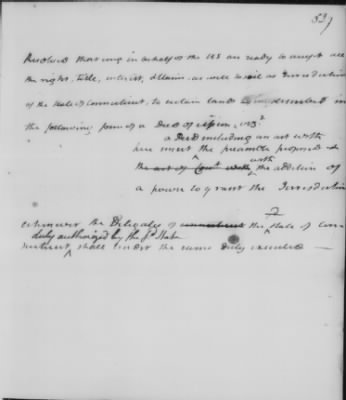 539
Resolved that cong in behalf of the US are ready to accept all
the right, title, interest, & claim, as well to soil as Jurisdiction
of the State of Connecticut, to certain lands described in
the following form of a Deed of cession, viz
a Deed including an act with
here insert the preamble proposed &
the act of Cont. with with the addition of
a power to grant the Jurisdiction
whenever the Delegates of Connecticut the State of Conn
duly authorized by the sd State
necticut shall tender the same duly executed —